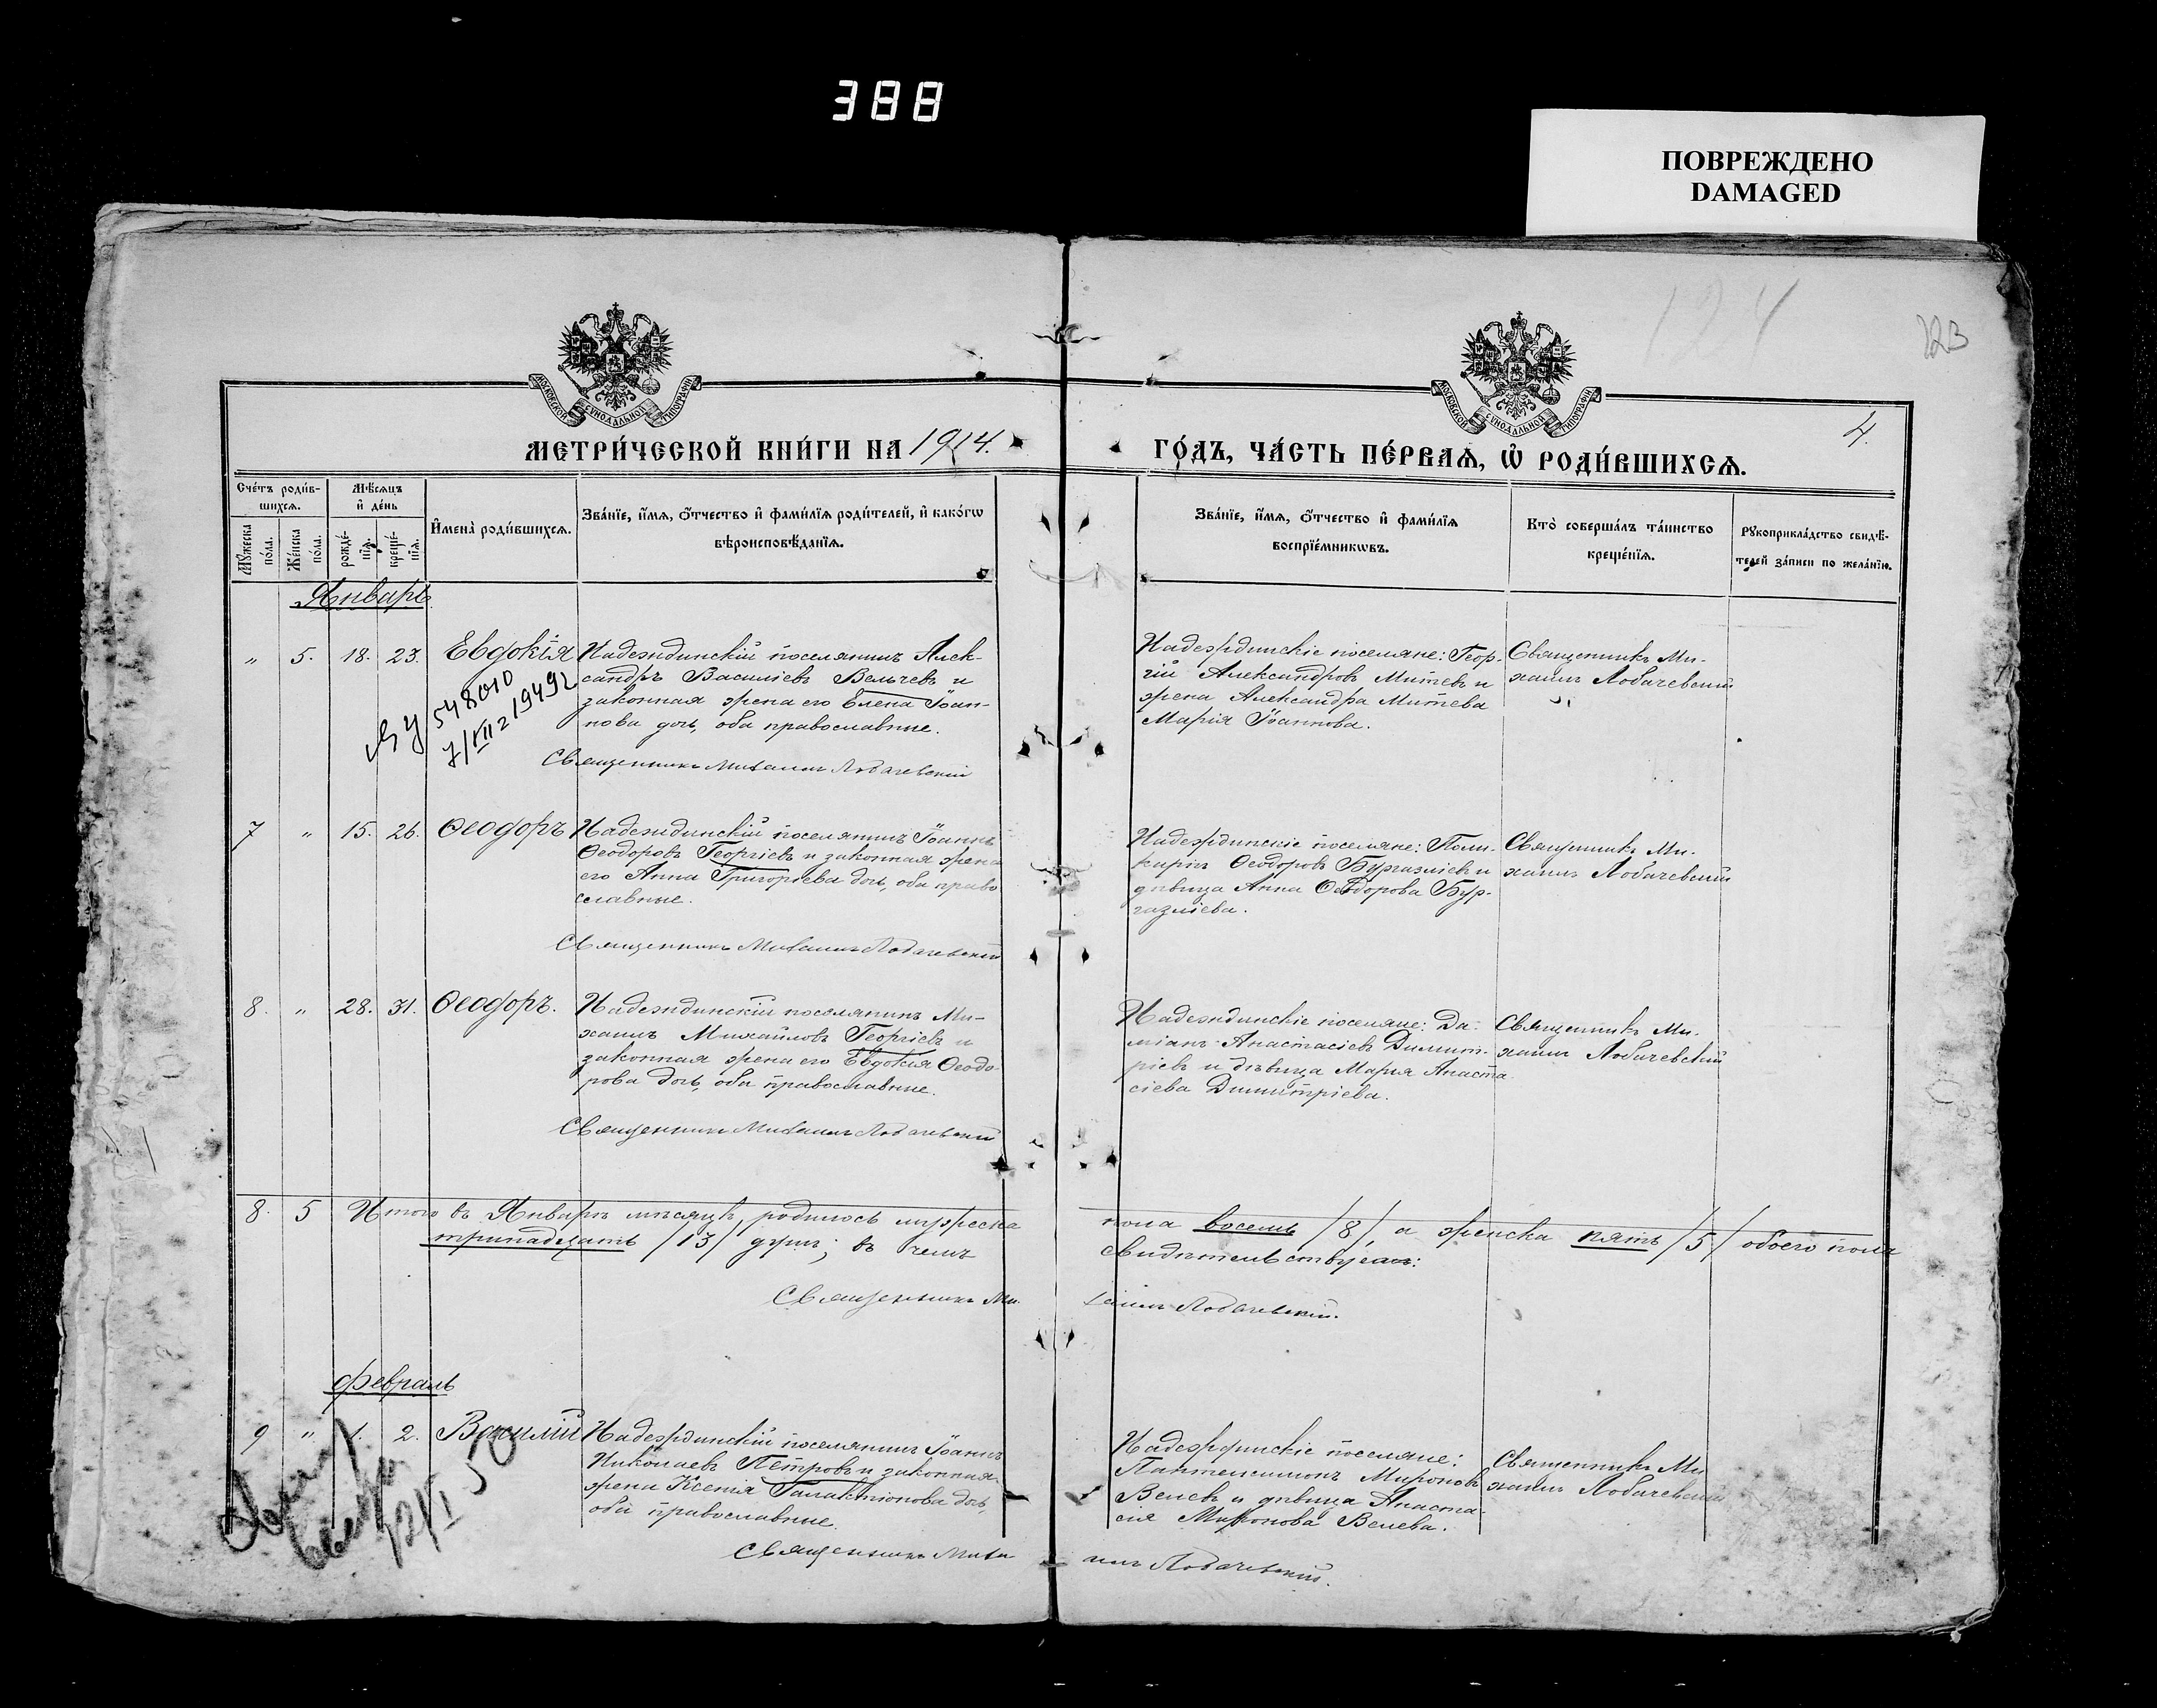 388
ПОВРЕЖДЕНО
DAMAGED
124
123
МОСКОВСКОЙ СѴНОДАЛЬНОЙ ТИПОГРАФІИ
МОСКОВСКОЙ СѴНОДАЛЬНОЙ ТИПОГРАФІИ
МЕТРИ́ЧЕСКОЙ КНИ́ГИ НА 1914.
ГО́ДЪ, ЧА́СТЬ ПЕ́РВАѦ, Ѡ҆ РОДИ́ВШИХСѦ.
4.
Сче́тъ роди́в-
шихсѧ.
Мѣ́сѧцъ
и҆ де́нь
Мꙋ́жеска по́ла.
Же́нска по́ла.
рожде́-нїѧ.
креще́-нїѧ.
И҆мена̀ роди́вшихсѧ.
Зва́нїе, и҆́мѧ, ѻ҆́тчество и҆ фами́лїѧ роди́телей, и҆ како́гѡ
вѣроисповѣ́данїѧ.
Зва́нїе, и҆́мѧ, ѻ҆́тчество и҆ фами́лїѧ
воспрїе́мникѡвъ.
Кто̀ соверша́лъ та́инство
креще́нїѧ.
Рꙋкоприкла́дство свидѣ́-
телей за́писи по жела́нїю.
Январь.
" 5. 18. 23. Евдокія
Надеждинскій поселянинъ Алек-
сандръ Василіевъ Вельчевъ и
законная жена его Елена Іоан-
нова дочь, оба православные.
548010
7/VII 2 1949г
Священникъ Михаилъ Лобачевскій
Надеждинскіе поселяне: Геор-
гій Александровъ Митевъ и
жена Александра Митева
Марія Іоаннова.
Священникъ Ми-
хаилъ Лобачевскій
7 " 15. 26. Ѳеодоръ
Надеждинскій поселянинъ Іоаннъ
Ѳеодоровъ Георгіевъ и законная жена
его Анна Григоріева дочь, оба право
славные.
Священникъ Михаилъ Лобачевскій
Надеждинскіе поселяне: Поли-
карпъ Ѳеодоровъ Бургазліевъ и
дѣвица Анна Ѳеодорова Бур-
газліева.
Священникъ Ми-
хаилъ Лобачевскій
8. " 28. 31. Ѳеодоръ.
Надеждинскій поселянинъ Ми-
хаилъ Михайловъ Георгіевъ и
законная жена его Евдокія Ѳеодо-
рова дочь, оба православные.
Священникъ Михаилъ Лобачевскій
Надеждинскіе поселяне: Да-
міанъ Анастасіевъ Димит-
ріевъ и дѣвица Марія Анаста
сіева Димитріева.
Священникъ Ми-
хаилъ Лобачевскій
8. 5 Итого въ Январѣ мѣсяцѣ, родилось мужеска
пола восемь /8/, а женска пять /5/ обоего пола
тринадцать /13/ душъ; въ чемъ
свидѣтельствуемъ:
Священникъ Ми-
хаилъ Лобачевскій.
Февраль
9 " 1. 2. Василій
Надеждинскій поселянинъ Іоаннъ
Николаевъ Петровъ и законная
жена Ксенія Галактіонова дочь,
оба православные.
12/I 50
Священникъ Миха
илъ Лобачевскій.
Надеждинскіе поселяне:
Пантелеимонъ Мироновъ
Велевъ и дѣвица Анаста-
сія Миронова Велева.
Священникъ Ми
хаилъ Лобачевскій